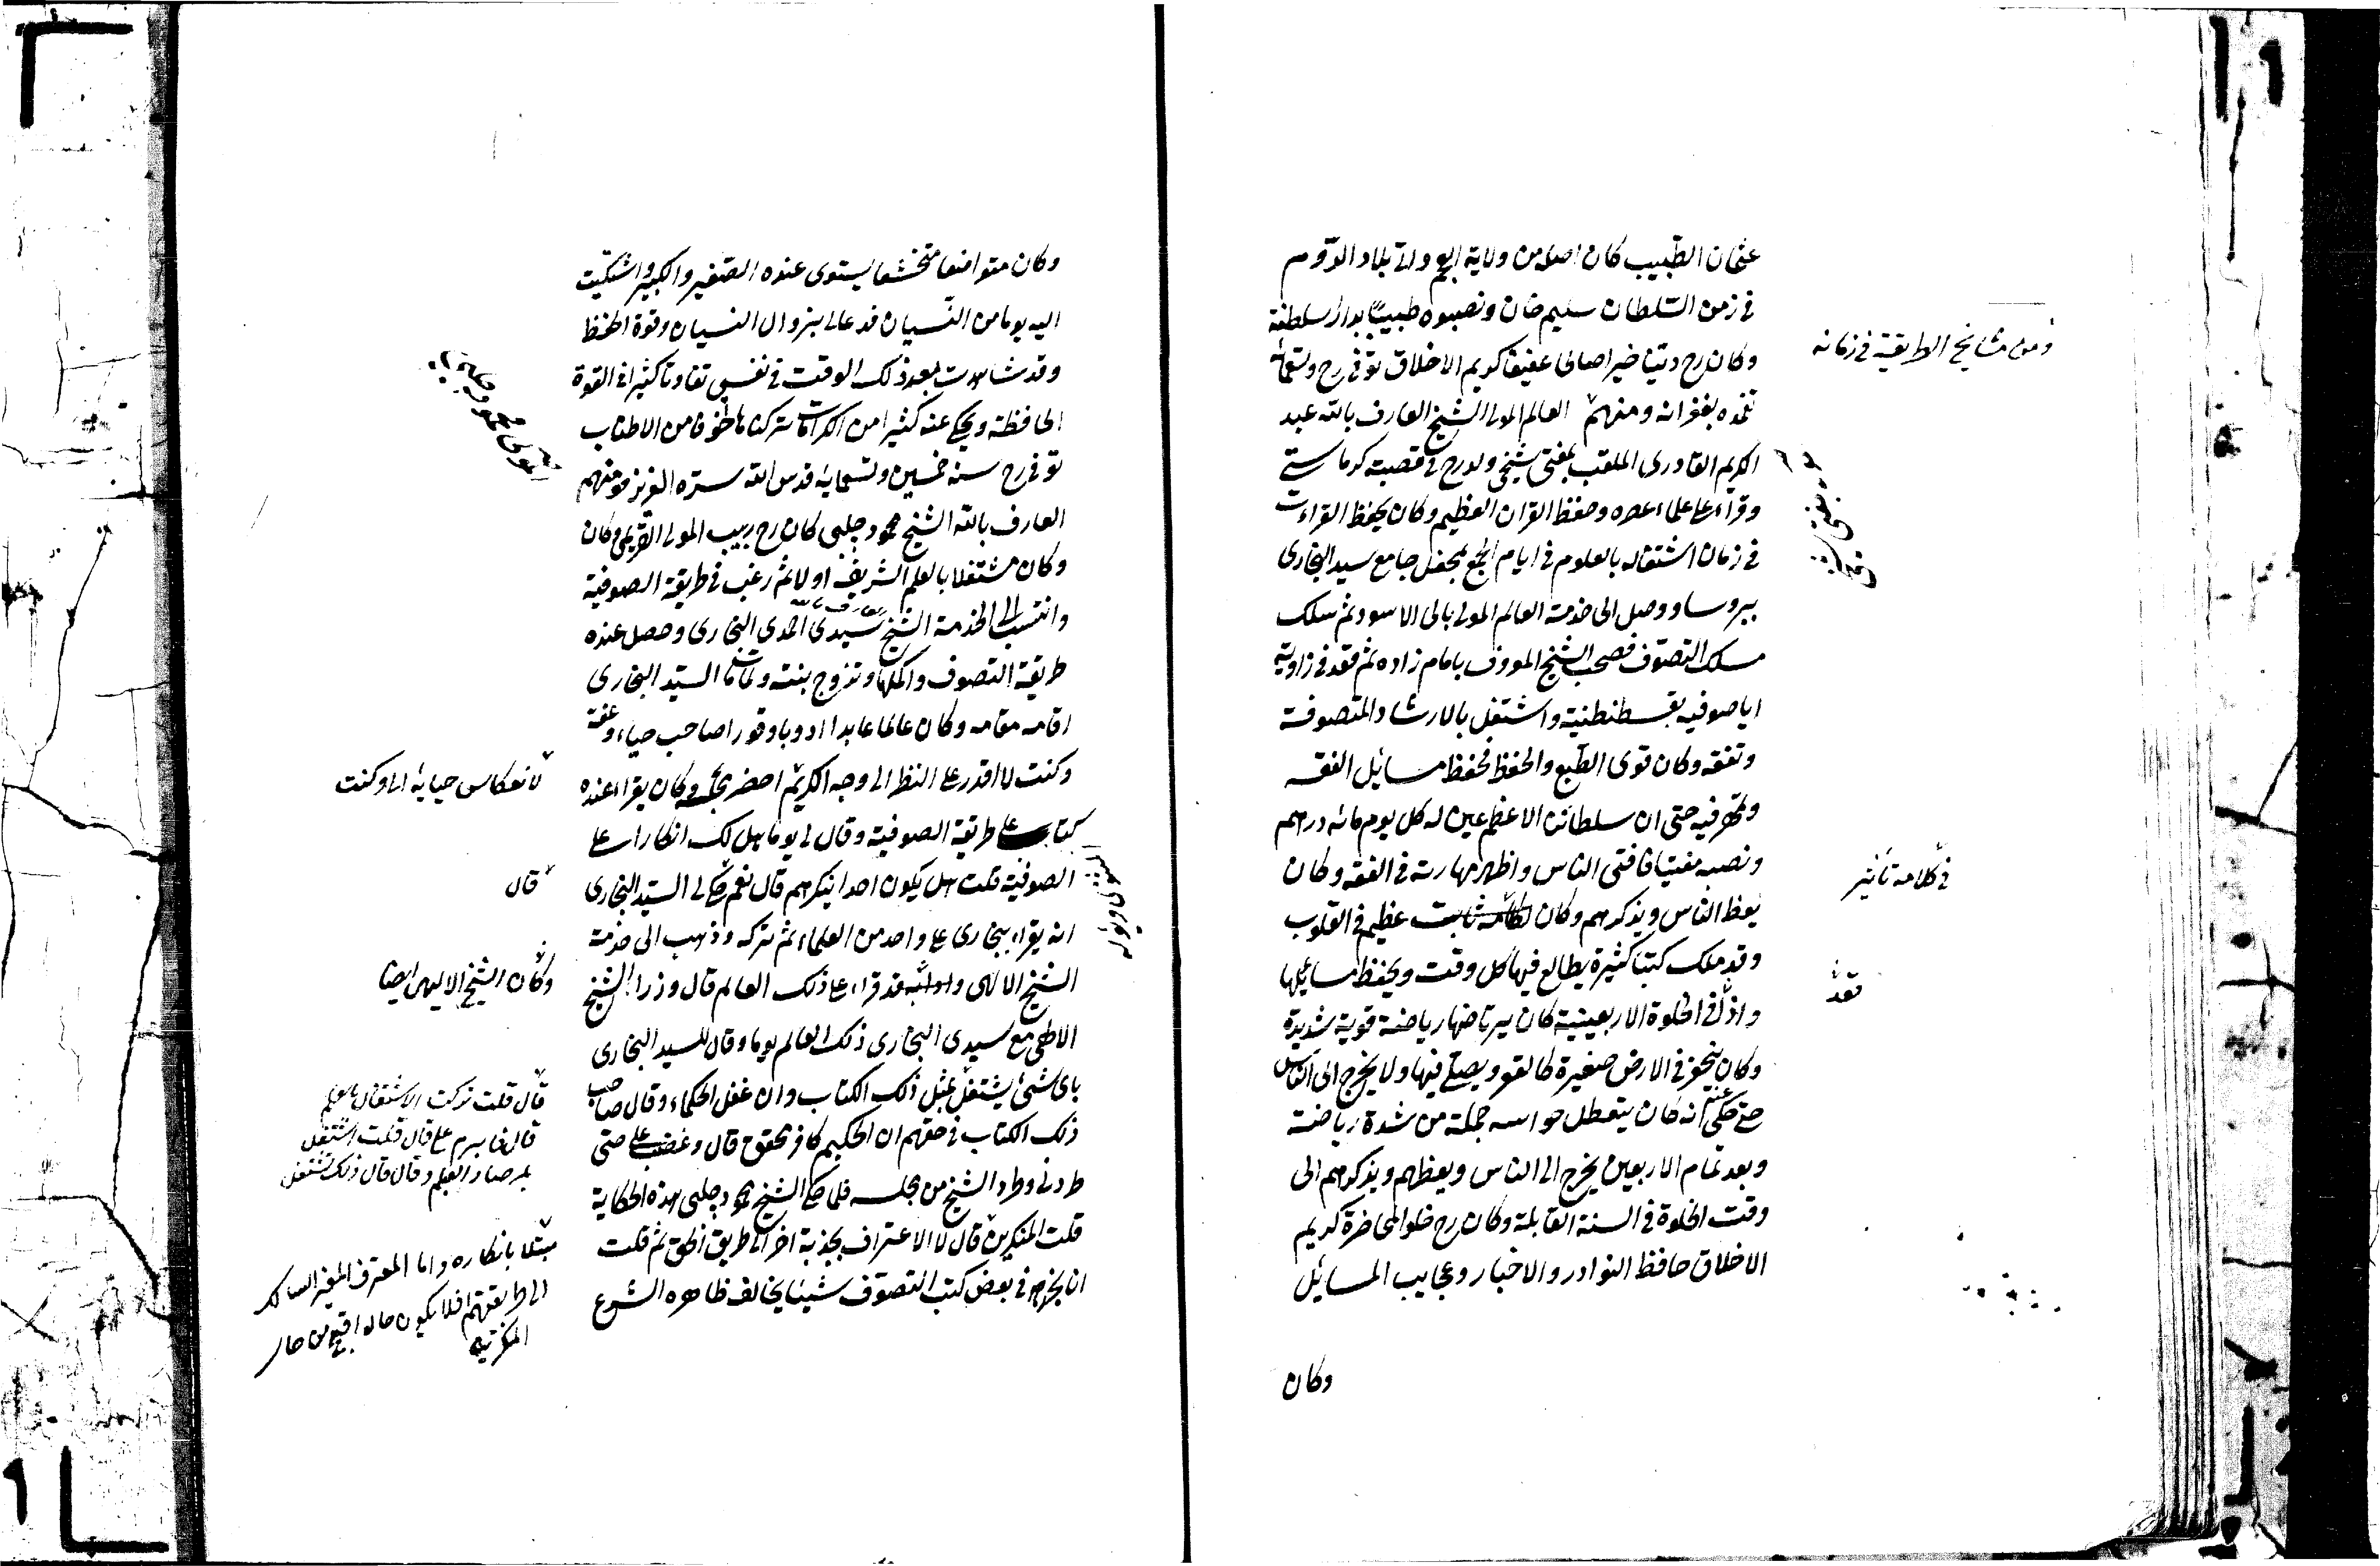 عثمان الطبيب كان اصله من ولاية العجم واتى بلاد الروم
في زمن السلطان سليم خان ونصبوه طبيبا بدار سلطنة
وكان رح دينا خيرا صالحا عفيفا كريم الاخلاق توفى رح وتسعمائة
تغمده بغفرانه ومنهم العالم المولى الشيخ العارف بالله عبد
الكريم القادرى الملقب بمفتى شيخ ولد رح في قصبة كرماستى
وقراء على علماء عصره وحفظ القران العظيم وكان يحفظ القراءت
في زمان اشتغاله بالعلوم في ايام الجمع بمحفل جامع سيد البخارى
ببروسا ووصل الى خدمة العالم المولى بالى الاسود ثم سلك
مسلك التصوف فصحب الشيخ المعروف بامام زاده ثم قعد في زاوية
اياصوفيه بقسطنطنية واشتغل بالارشاد المتصوفة
وتفقه وكان قوى الطبع والحفظ فحفظ مسائل الفقه
وتمهر فيه حتى ان سلطاننا الاعظم عين له كل يوم مائه درهم
ونصبه مفتيا فافتى الناس واظهر مهارته في الفقه وكان
يعظ الناس ويذكرهم وكان عظيم في القلوب
وقد ملك كتبا كثيرة يطالع فيها كل وقت ويحفظ مسائلها
واذا في الخلوة الاربعينية كان يرتاضها رياضة قوية شديدة
وكان ينحفر في الارض صغيرة كالقعر ويصلى فيها ولا يخرج الى الناس
حتى حكى عنه انه كان يتعطل حواسه جملة من شدة رياضة
وبعد تمام الاربعين يخرج الى الناس ويعظهم ويذكرهم الى
وقت الخلوة في السنة القابلة وكان رح حلو المحاضرة كريم
الاخلاق حافظ النوادر والاخبار وعجايب المسائل
وكان
ومن مشايخ الطريقة في زمانه
مفتى شيخ
في كلامه تاثير
قعد
وكان متواضعا متخشعا يستوى عنده الصغير والكبير واشتكيت
اليه يوما من النسيان فدعا لى بزوال النسيان وقوة الحفظ
وقد شاهدت بعد ذلك الوقت في نفسى تفاوتا كثيرا في القوة
الحافظة ويحكى عنه كثيرا من الكرامات تركناها خوفا من الاطناب
توفى رح سنه خمسين وتسعمايه قدس الله سره العزيز ومنهم
العارف بالله الشيخ محمود جلبى كان رح ربيب المولى القريمى وكان
وكان مشتغلا بالعلم الشريف اولا ثم رغب في طريقة الصوفية
وانتسب الى لخدمة الشيخ العارف بالله سيدى احمد البخارى وحصل عنده
طريقة التصوف واكملها وتزوج بنته ولما مات السيد البخارى
اقامه مقامه وكان عالما عابدا اديبا وقورا صاحب حياء وعفة
وكنت لا اقدر على النظر الى وجه الكريم احضر مجلسه وكان يقراء عنده
كتاب على طريقة الصوفية وقال لى يوما هل لك انكارا على
الصوفية قلت هل يكون احد اينكرهم قال نعم حكى لى السيد البخارى
انه يقراء ببخارى على واحد من العلماء ثم تركه وذهب الى خدمة
الشيخ الالهى قد قراء على ذلك العالم قال وزرا الشيخ
الالهى مع سيدى البخارى ذلك العالم يوما وقال للسيد البخارى
باى شئ يشتغل بمثل ذلك الكتاب وان غفل الحكماء وقال صاحب
ذلك الكتاب في حقهم ان الحكيم كافر محقوق قال وغضب على حتى
طردنى وطرد الشيخ من مجلسه فلما حكى الشيخ محمود جلبى هذه الحكاية
قلت المنكرين قال لا الاعتراف يجذبه اخرا الى طريق الحق ثم قلت
انا نجد في بعض كتب التصوف شيئا يخالف ظاهره الشرع
المولى محمود جلبى
لانعكاس حيايه الى وكنت
قال
وكان الشيخ الالهى ايضا
قال قلت تركت الاشتغال بالعلم
قال فابرم على قال قلت اشتغل
العلم وقال قال ذلك تشتغل
مبتلا بانكاره واما المعترف الغير السالك
الى طريقتهم افلا يكون حاله اقبح من حال
المنكر فيه